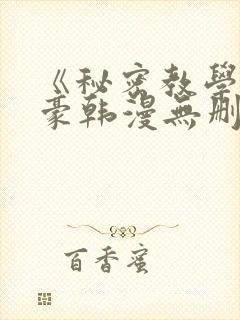 《秘密教学
豪韩漫無刪
百香蜜